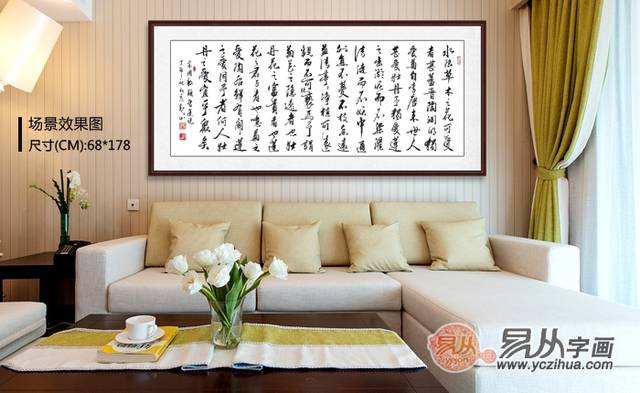 水陆草木之花可爱
者甚蕃晋陶渊明独
爱菊自李唐来世人
甚爱牡丹予独爱莲
之出淤泥而不染濯
清涟而不妖中通
外直不蔓不枝香远
益清亭亭净植可远
观而不可亵玩焉予谓
菊花之隐逸者也牡
丹花之富贵者也莲
花之君子者也噫菊之
爱陶后鲜有闻莲
之爱同予者何人牡
丹之爱宜乎众矣
宋周敦颐爱莲说
场景效果图
尺寸(CM):68*178
易从字画
www.yczihua.com